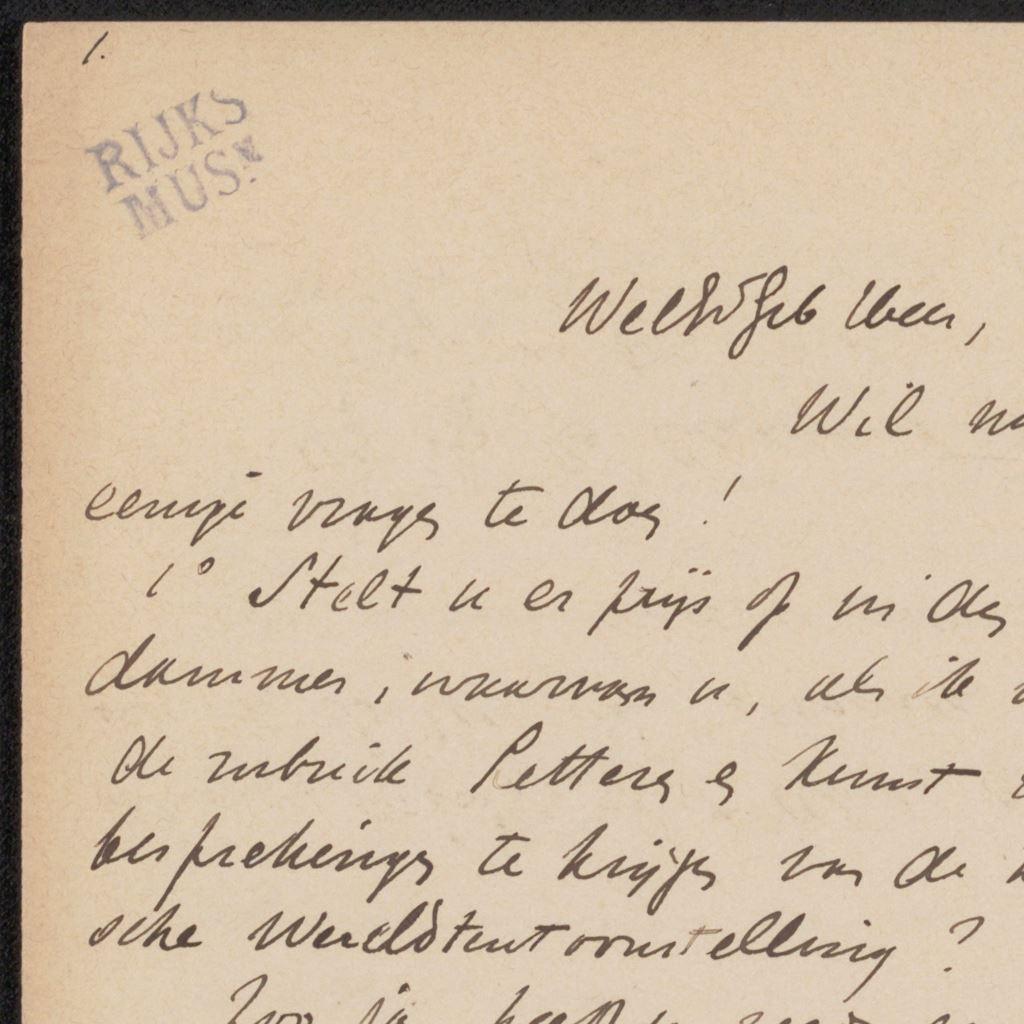 1.
RIJKS
MUS.
WelEdGeb Heer,
Wil
eenige vragen te doen!
1° Stelt u er prijs op in den
dammer, waarvan u, als ik
de rubriek Letteren en Kunst
besprekingen te krijgen van de
sche Wereldtentoonstelling?
Zoo ja, heeft u